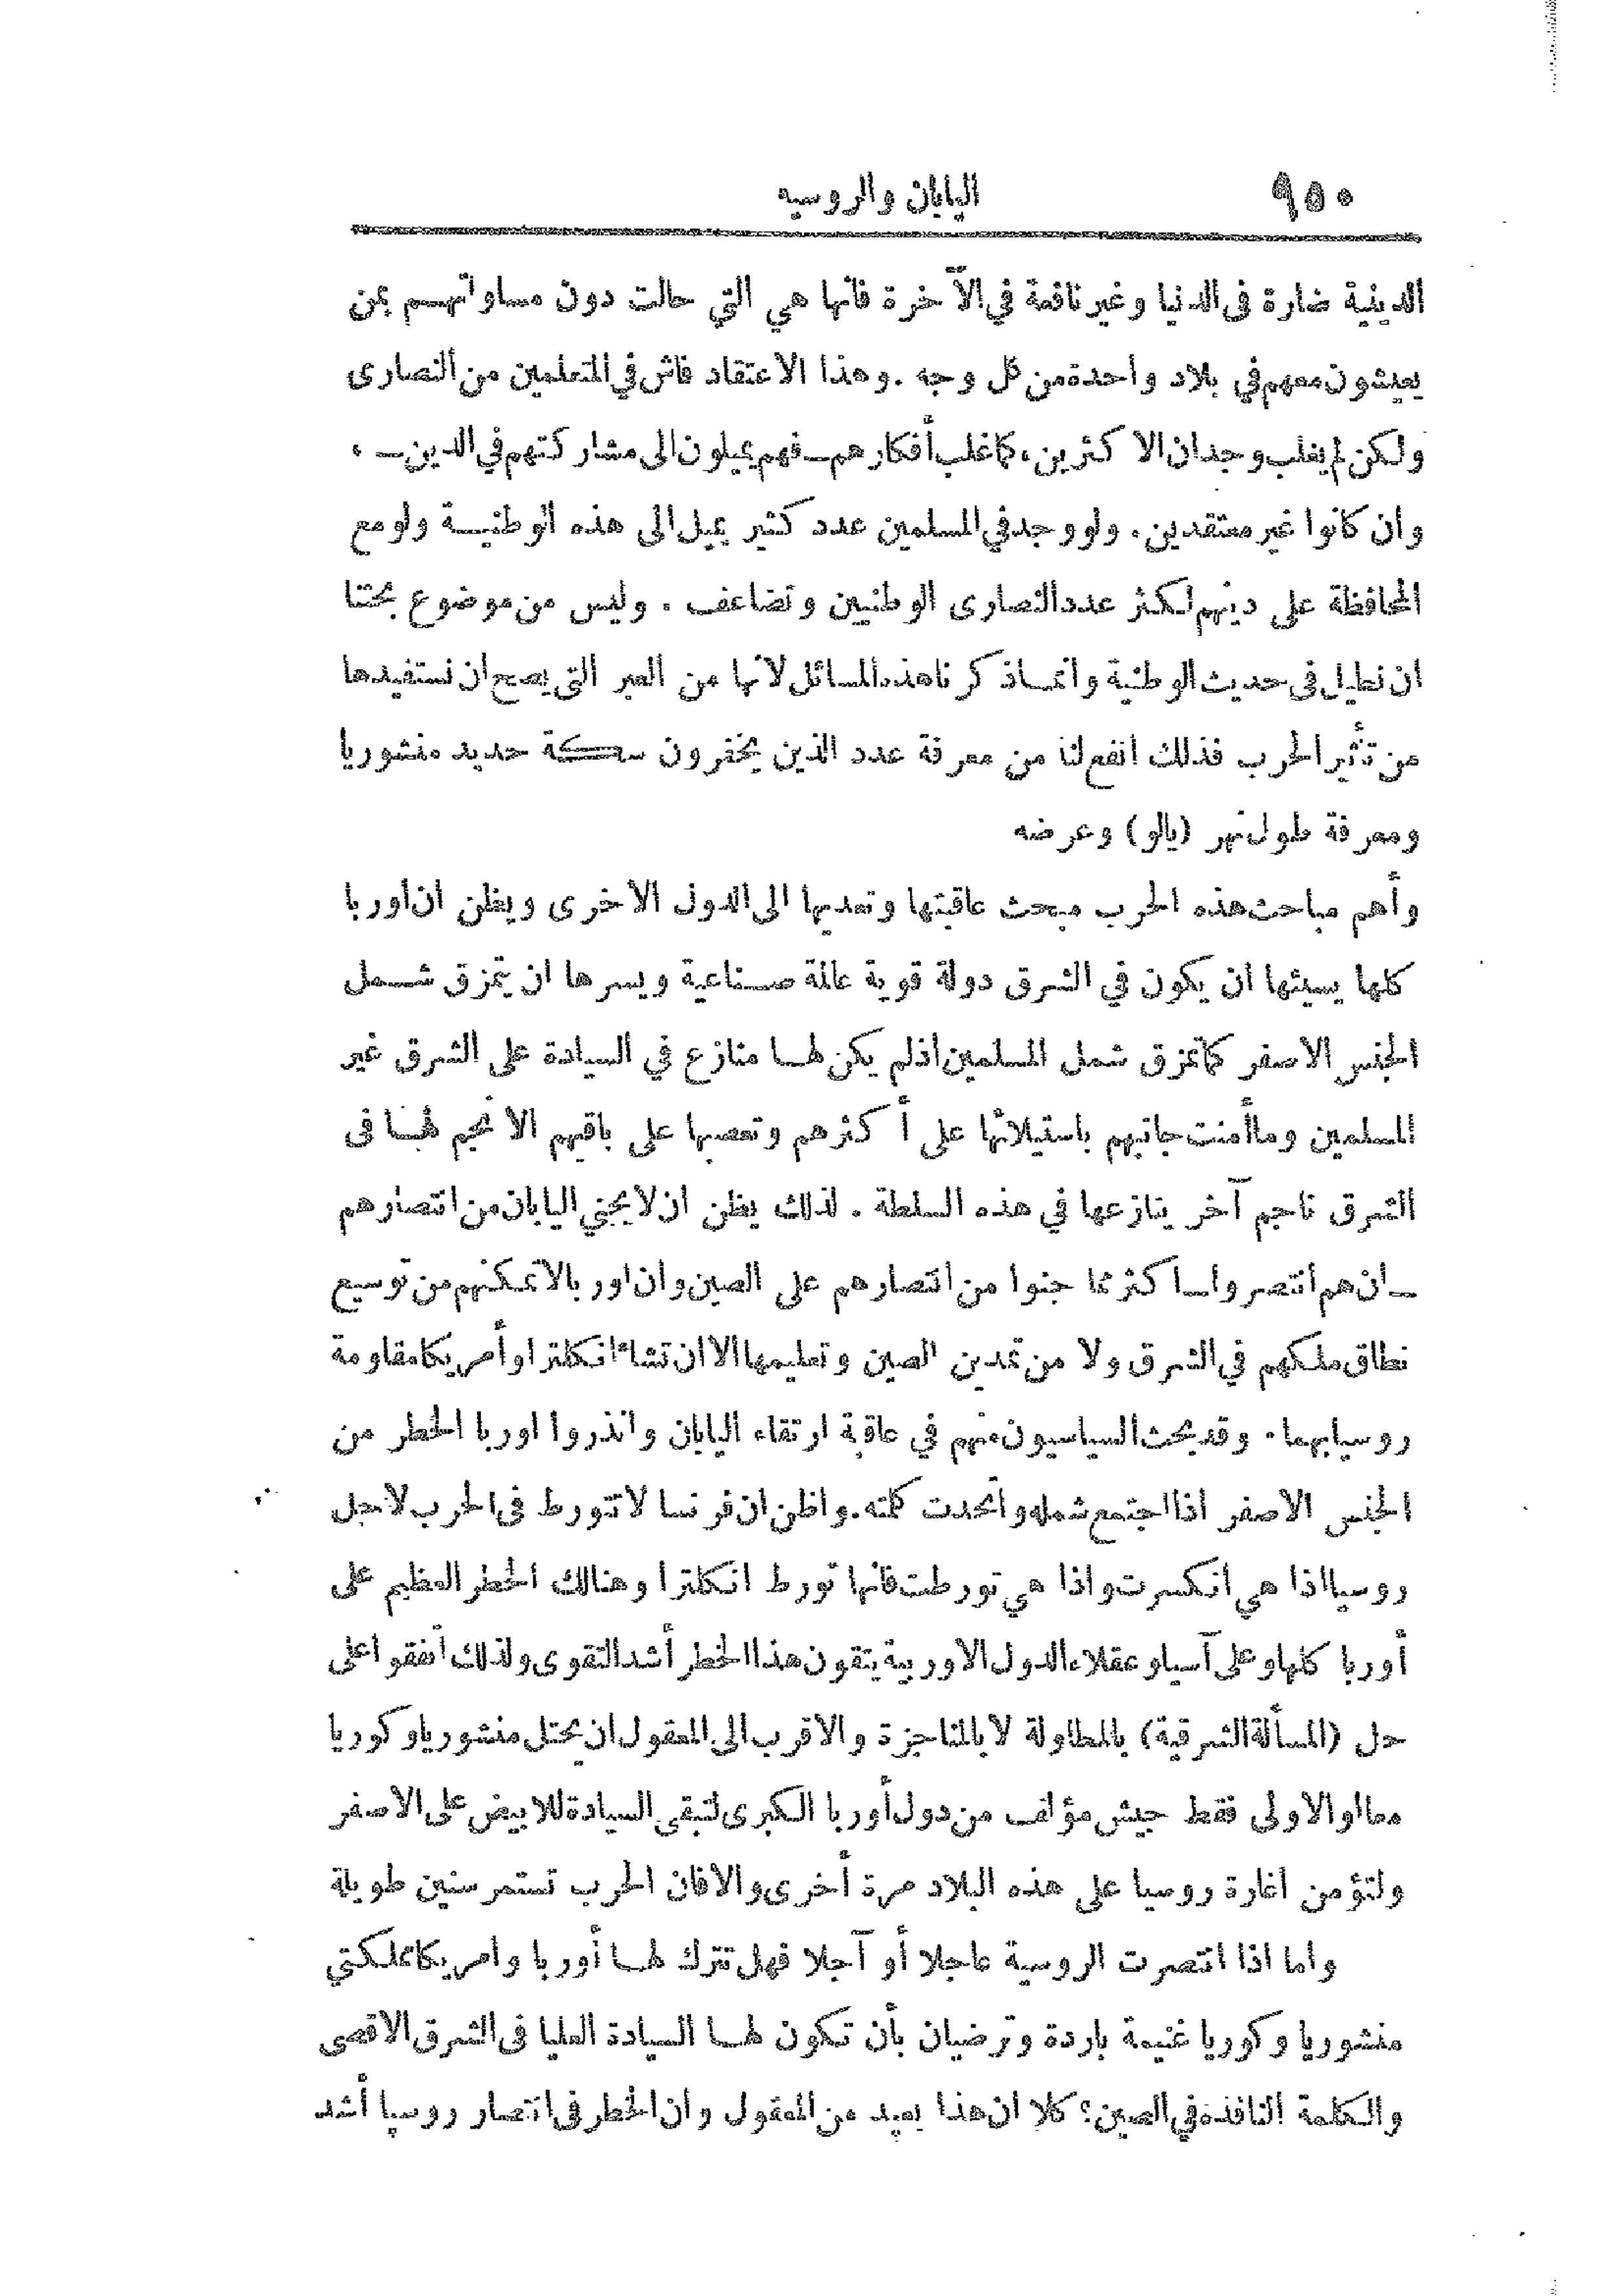 ٩٥٠
اليابان والروسيه
الدينية ضارة فى الدنيا وغير نافعة في الآخرة فانها هي التي حالت دون مساواتهم بمن
يعيشون معهم في بلاد واحدة من كل وجه . وهذا الاعتقاد فاش في المتعلمين من النصارى
ولكن لم يغلب وجدان الاكثرين ، كما غلب أفكارهم ــ فهم يميلون الى مشاركتهم في الدين ــ ،
وان كانوا غير معتقدين . ولو وجد في المسلمين عدد كثير يميل الى هذه الوطنية ولو مع
المحافظة على دينهم لكثر عدد النصارى الوطنيين وتضاعف . وليس من موضوع بحثنا
ان نطيل فى حديث الوطنية وانما ذكرنا هذه المسائل لانها من العبر التى يصح ان نستفيدها
من تأثير الحرب فذلك انفع لنا من معرفة عدد الذين يخفرون سكة حديد منشوريا
ومعرفة طول نهر (يالو) وعرضه
وأهم مباحث هذه الحرب مبحث عاقبتها وتعديها الى الدول الاخرى ويظن ان اوربا
كلها يسيئها ان يكون في الشرق دولة قوية عالمة صناعية ويسرها ان يتمزق شمل
الجنس الاصفر كما تمزق شمل المسلمين اذ لم يكن لها منازع في السيادة على الشرق غير
المسلمين وما أمنت جانبهم باستيلائها على أكثرهم وتعصبها على باقيهم الا نجم لها فى
الشرق ناجم آخر ينازعها في هذه السلطة . لذلك يظن ان لا يجني اليابان من انتصارهم
ــ ان هم انتصروا ــ اكثر مما جنوا من انتصارهم على الصين وان اوربا لا تمكنهم من توسيع
نطاق ملكهم في الشرق ولا من تمدين الصين وتعليمها الا ان تشاء انكلترا وأمريكا مقاومة
روسيا بهما . وقد بحث السياسيون منهم في عاقبة ارتقاء اليابان وانذروا اوربا الخطر من
الجنس الاصفر اذا اجتمع شمله واتحدت كلمته . واظن ان فرنسا لا تتورط فى الحرب لاجل
روسيا اذا هي انكسرت واذا هي تورطت فانها تورط انكلترا وهنالك الخطر العظيم على
أوربا كلها وعلى آسيا وعقلاء الدول الاوربية يتقون هذا الخطر أشد التقوى ولذلك اتفقوا على
حل (المسألة الشرقية) بالمطاولة لا بالمناجزة والاقرب الى المعقول ان يحتل منشوريا وكوريا
معا او الاولى فقط جيش مؤلف من دول أوربا الكبرى لتبقى السيادة للابيض على الاصفر
ولتؤمن اغارة روسيا على هذه البلاد مرة أخرى والا فان الحرب تستمر سنين طويلة
واما اذا انتصرت الروسية عاجلا أو آجلا فهل تترك لها أوربا وامريكا مملكتي
منشوريا وكوريا غنيمة باردة وترضيان بأن تكون لها السيادة العليا فى الشرق الاقصى
والكلمة النافذه في الصين؟ كلا ان هذا بعيد من المعقول وان الخطر فى انتصار روسيا أشد